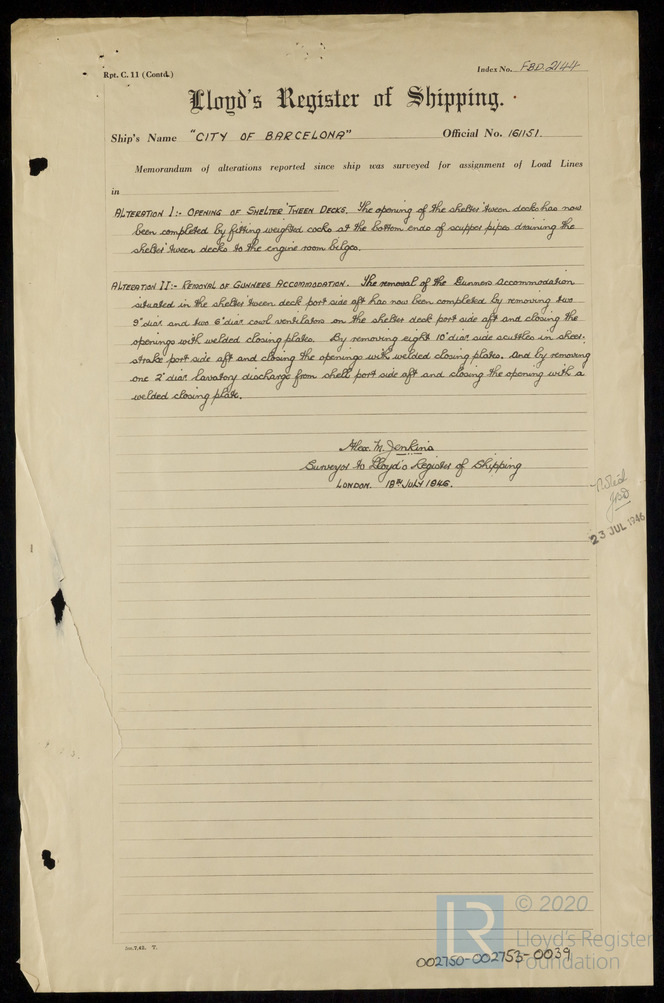 Rpt. C. 11 (Contd.)
Index No. FBD. 2144
Lloyd's Register of Shipping.
Ship's Name "CITY OF BARCELONA" Official No. 161151.
Memorandum of alterations reported since ship was surveyed for assignment of Load Lines
in
ALTERATION I:- OPENING OF SHELTER 'TWEEN DECKS. The opening of the shelter 'tween decks has now
been completed by fitting weighted cocks at the bottom ends of scupper pipes draining the
shelter 'tween decks to the engine room bilges.
ALTERATION II:- REMOVAL OF GUNNERS ACCOMMODATION. The removal of the Gunners accommodation
situated in the shelter 'tween deck port side aft has now been completed by removing two
9" diar. and two 6" diar. cowl ventilators on the shelter deck port side aft and closing the
openings with welded closing plates. By removing eight 10" diar. side scuttles in sheer-
strake port side aft and closing the openings with welded closing plates. And by removing
one 2" diar. lavatory discharge from shell port side aft and closing the opening with a
welded closing plate.
Alex. M. Jenkins
Surveyor to Lloyd's Register of Shipping
LONDON. 18th JULY 1946.
23 JUL 1946
7,45. 7.
LR
© 2020
Lloyd's Register
Foundation
002750-002753-0039